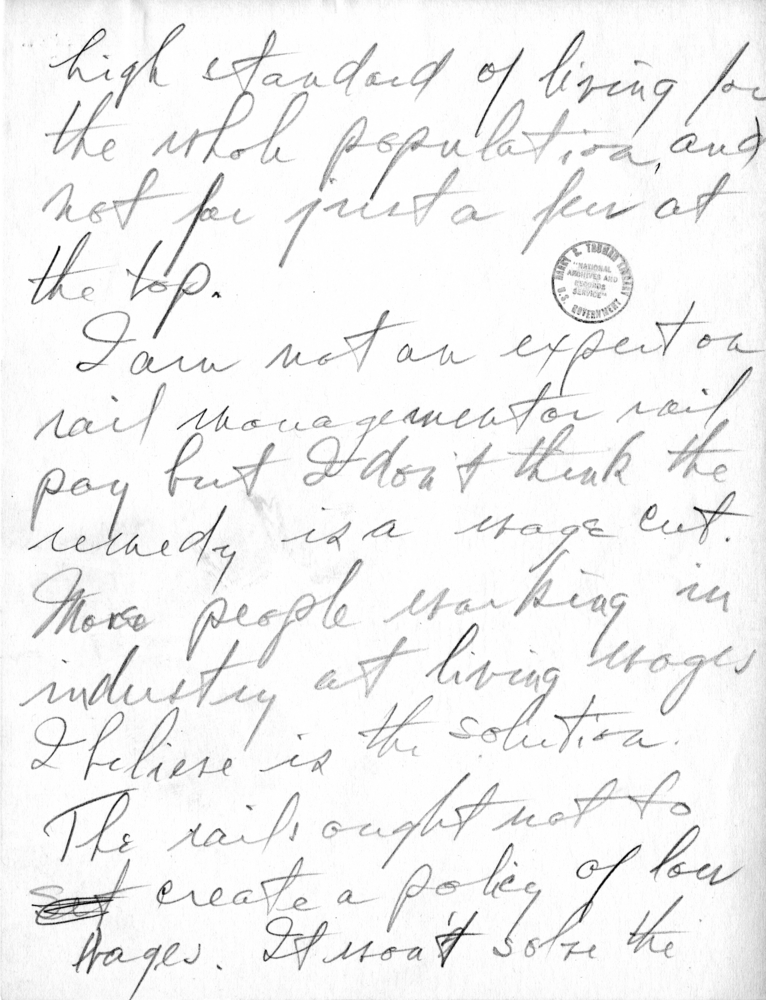 high standard of living for
the whole population, and
not for just a few at
the top.
HARRY S. TRUMAN LIBRARY
"NATIONAL
ARCHIVES AND
RECORDS
SERVICE"
U.S. GOVERNMENT
I am not an expert on
rail management or rail
pay but I don't think the
remedy is a wage cut.
More people working in
industry at living wages
I believe is the solution.
The rails ought not to
set create a policy of low
wages. It won't solve the